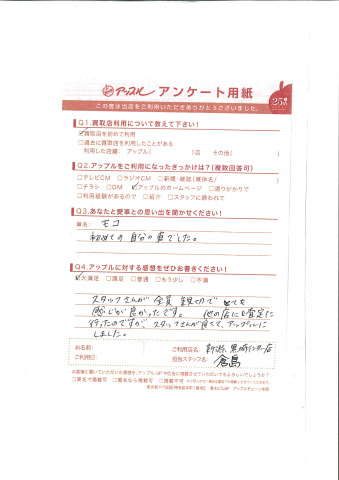 アップル アンケート用紙
この度は当店をご利用いただきありがとうございました。
25th
Q1.買取店利用について教えて下さい！
☑買取店を初めて利用
□過去に買取店を利用したことがある
利用した店舗： アップル( )店 その他( )
Q2.アップルをご利用になったきっかけは？(複数回答可)
□テレビCM □ラジオCM □新聞・雑誌(媒体名/ )
□チラシ □DM ☑アップルのホームページ □通りがかりで
□利用経験があるので □紹介 □スタッフに誘われて
Q3.あなたと愛車との思い出を聞かせてください！
車名： モコ
初めての自分の車でした。
Q4.アップルに対する感想をぜひお書きください！
☑大満足 □満足 □普通 □もう少し □不満
スタッフさんが全員親切でとても
感じが良かったです。 他の店にも査定に
行ったのですが スタッフさんが良くて、アップルに
しました。
お名前：
ご利用日：
ご利用店名： 新潟黒崎インター店
担当スタッフ名：
お客様に書いていただいた感想を、アップルHPや店舗に掲載させていただいてもよろしいでしょうか？
□実名で掲載可 □匿名なら掲載可 □掲載不可